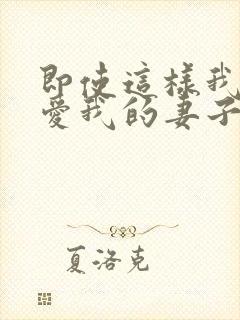 即使這樣我
愛我的妻子
夏洛克